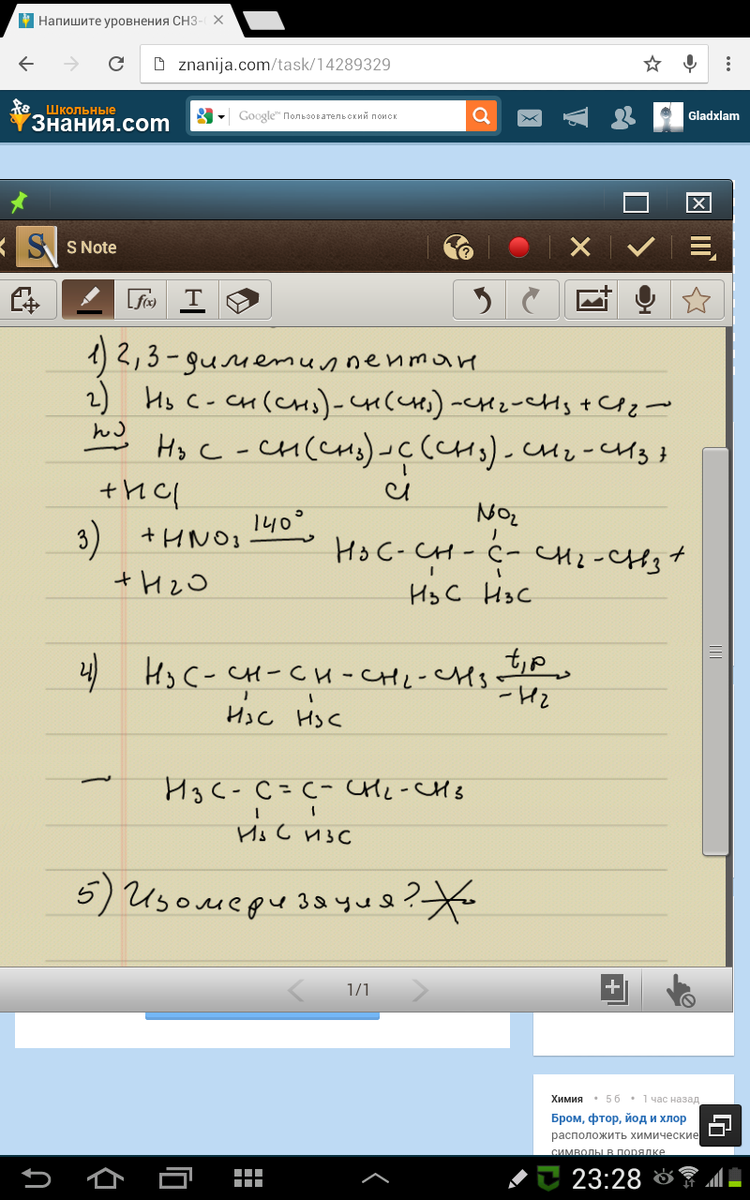 Напишите уровнения CH3-
znanija.com/task/14289329
Школьные
Знания.com
Google™ Пользовательский поиск
Gladxlam
S Note
1) 2,3-диметилпентан
2) H3C-CH(CH3)-CH(CH3)-CH2-CH3+Cl2→
hυ → H3C-CH(CH3)-C(CH3)-CH2-CH3+
+HCl Cl
NO2
3) +HNO3 140° → H3C-CH-C-CH2-CH3+
+H2O H3C H3C
4) H3C-CH-CH-CH2-CH3 t,p → -H2
H3C H3C
→ H3C-C=C-CH2-CH3
H3C H3C
5) Изомеризация?
1/1
Химия • 5 б • 1 час назад
Бром, фтор, йод и хлор
расположить химические
символы в порядке
23:28